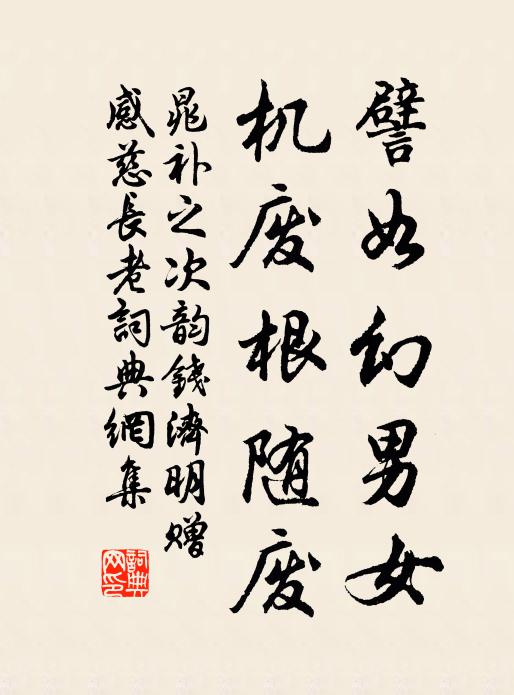 譬如幻男女
机废根随废
晁补之次韵錢濟明赠
感慈長老詞典網集
詞典網印